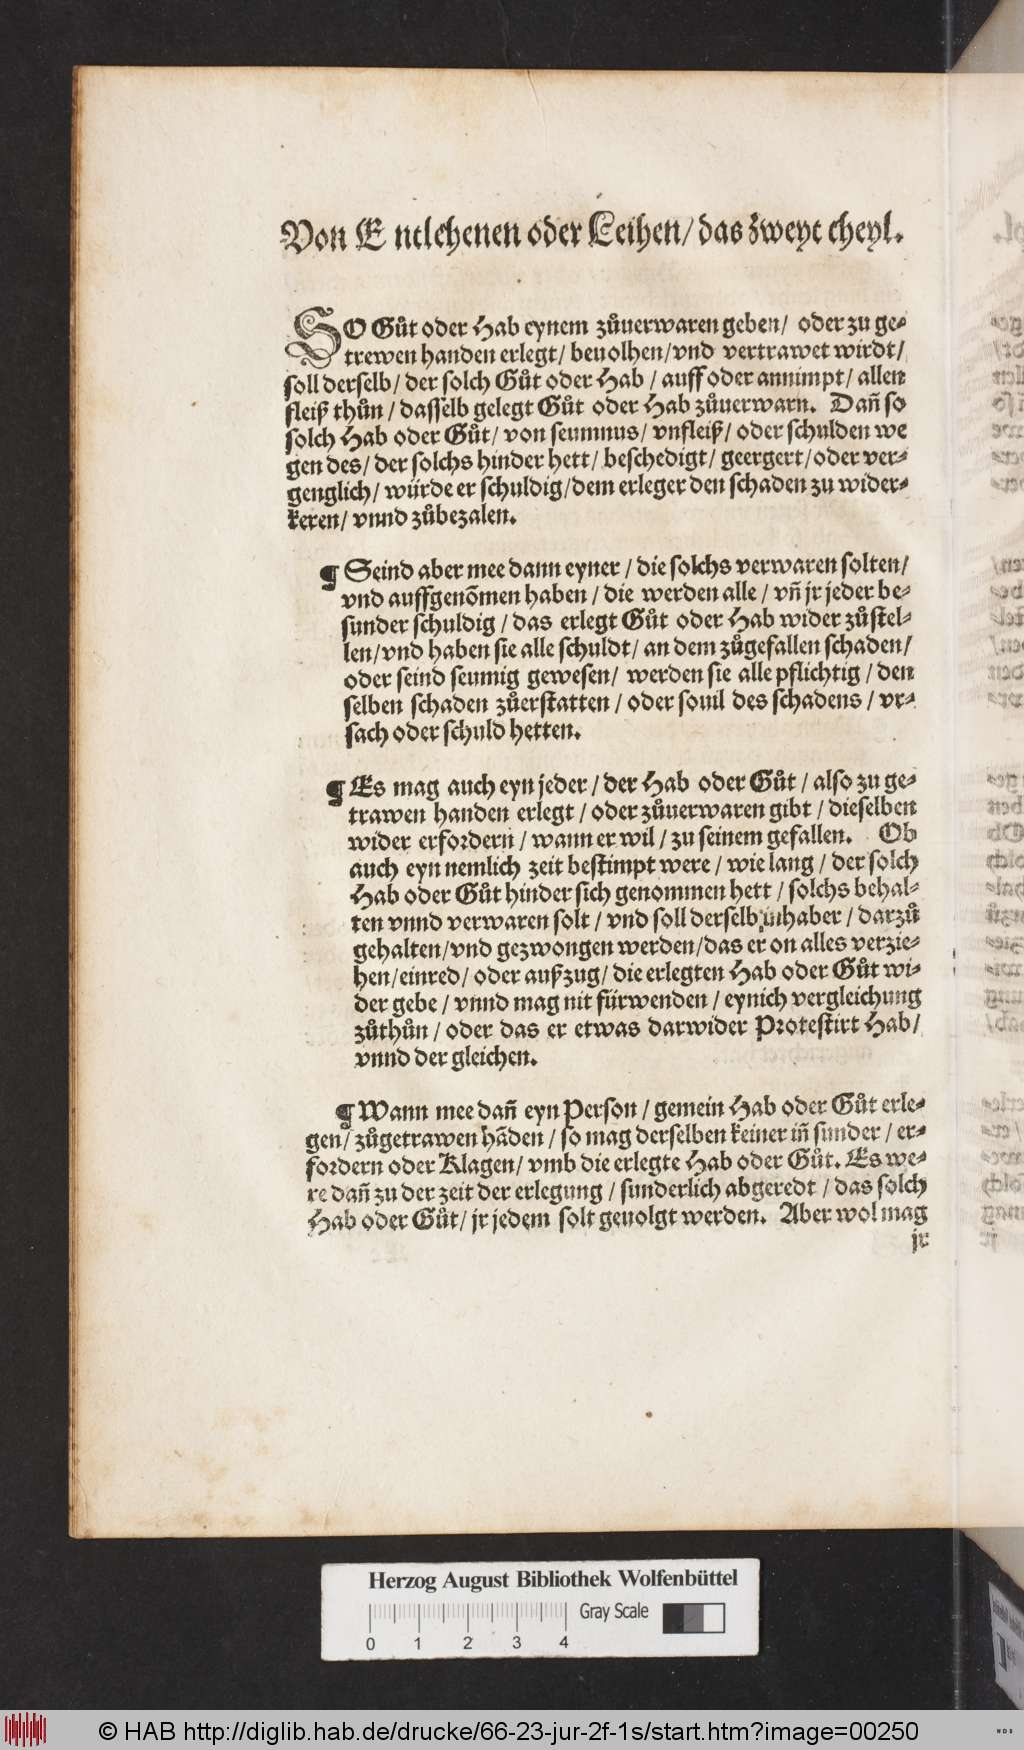 Von Entlehenen oder Leihen/ das zweyt theyl.
SO Gůt oder Hab eynem zůuerwaren geben/ oder zu ge-
trewen handen erlegt/ beuolhen/ vnd vertrawet wirdt/
soll derselb/ der solch Gůt oder Hab/ auff oder annimpt/ allen
fleiß thůn/ dasselb gelegt Gůt oder Hab zůuerwarn. Dañ so
solch Hab oder Gůt/ von seumnus/ vnfleiß/ oder schulden we
gen des/ der solchs hinder hett/ beschedigt/ geergert/ oder ver-
genglich/ würde er schuldig/ dem erleger den schaden zu wider-
keren/ vnnd zůbezalen.
¶ Seind aber mee dann eyner/ die solchs verwaren solten/
vnd auffgenõmen haben/ die werden alle/ vñ jr jeder be-
sunder schuldig/ das erlegt Gůt oder Hab wider zůstel-
len/ vnd haben sie alle schuldt/ an dem zůgefallen schaden/
oder seind seumig gewesen/ werden sie alle pflichtig/ den
selben schaden zůerstatten/ oder souil des schadens/ vr-
sach oder schuld hetten.
¶ Es mag auch eyn jeder/ der Hab oder Gůt/ also zu ge-
trawen handen erlegt/ oder zůuerwaren gibt/ dieselben
wider erfordern/ wann er wil/ zu seinem gefallen. Ob
auch eyn nemlich zeit bestimpt were/ wie lang/ der solch
Hab oder Gůt hinder sich genommen hett/ solchs behal-
ten vnnd verwaren solt/ vnd soll derselb inhaber/ darzů
gehalten/ vnd gezwongen werden/ das er on alles verzie-
hen/ einred/ oder außzug/ die erlegten Hab oder Gůt wi-
der gebe/ vnnd mag nit fürwenden/ eynich vergleichung
zůthůn/ oder das er etwas darwider Protestirt Hab/
vnnd der gleichen.
¶ Wann mee dañ eyn Person/ gemein Hab oder Gůt erle-
gen/ zůgetrawen hãden/ so mag derselben keiner iñ sunder/ er-
fordern oder Klagen/ vmb die erlegte Hab oder Gůt. Es we-
re dañ zu der zeit der erlegung/ sunderlich abgeredt/ das solch
Hab oder Gůt/ jr jedem solt geuolgt werden. Aber wol mag
jr
Herzog August Bibliothek Wolfenbüttel
Gray Scale
0 1 2 3 4
© HAB http://diglib.hab.de/drucke/66-23-jur-2f-1s/start.htm?image=00250